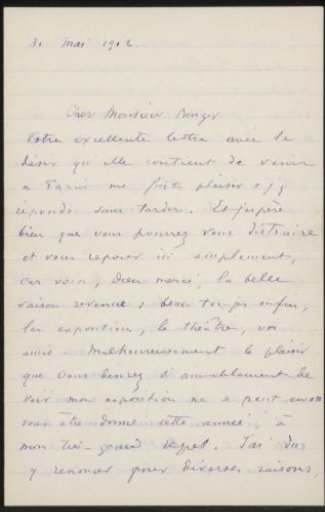 31 mai 1912.
Cher Monsieur
Votre excellente lettre avec le
désir qu'elle contient de venir
à Paris me fait plaisir & j'y
réponds sans tarder. Et j'espère
bien que vous pourrez vous distraire
et vous reposer ici simplement,
car voici, Dieu merci, la belle
saison revenue : beau temps enfin,
les expositions, le théâtre, vos
amis. Malheureusement le plaisir
que vous désirez si aimablement de
voir mon exposition ne peut encore
vous être donné cette année, à
mon très-grand regret. J'ai dû
y renoncer pour diverses raisons,